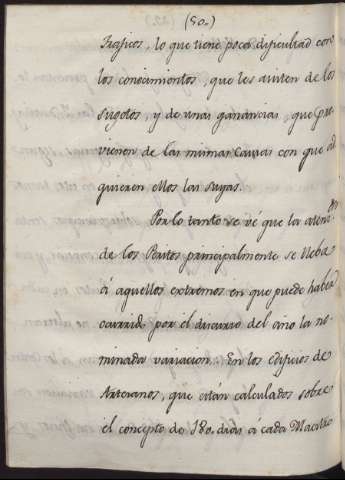 (50.)
Trafícos, lo que tiene poca dificultad con
los conocimientos, que les asisten de los
sugetos, y de unas ganancias, que pro-
vienen de las mismas Causas con que ad-
quieren ellos las suyas.
Por lo tanto se vé que la atenn.
de los Peritos principalmente se lleba
á aquellos extremos en que puede haber
currido por el discurso del año la no-
minada variacion. En los edificios de
Artesanos, que están calculados sobre
el concepto de 180. dias a cada Maestro